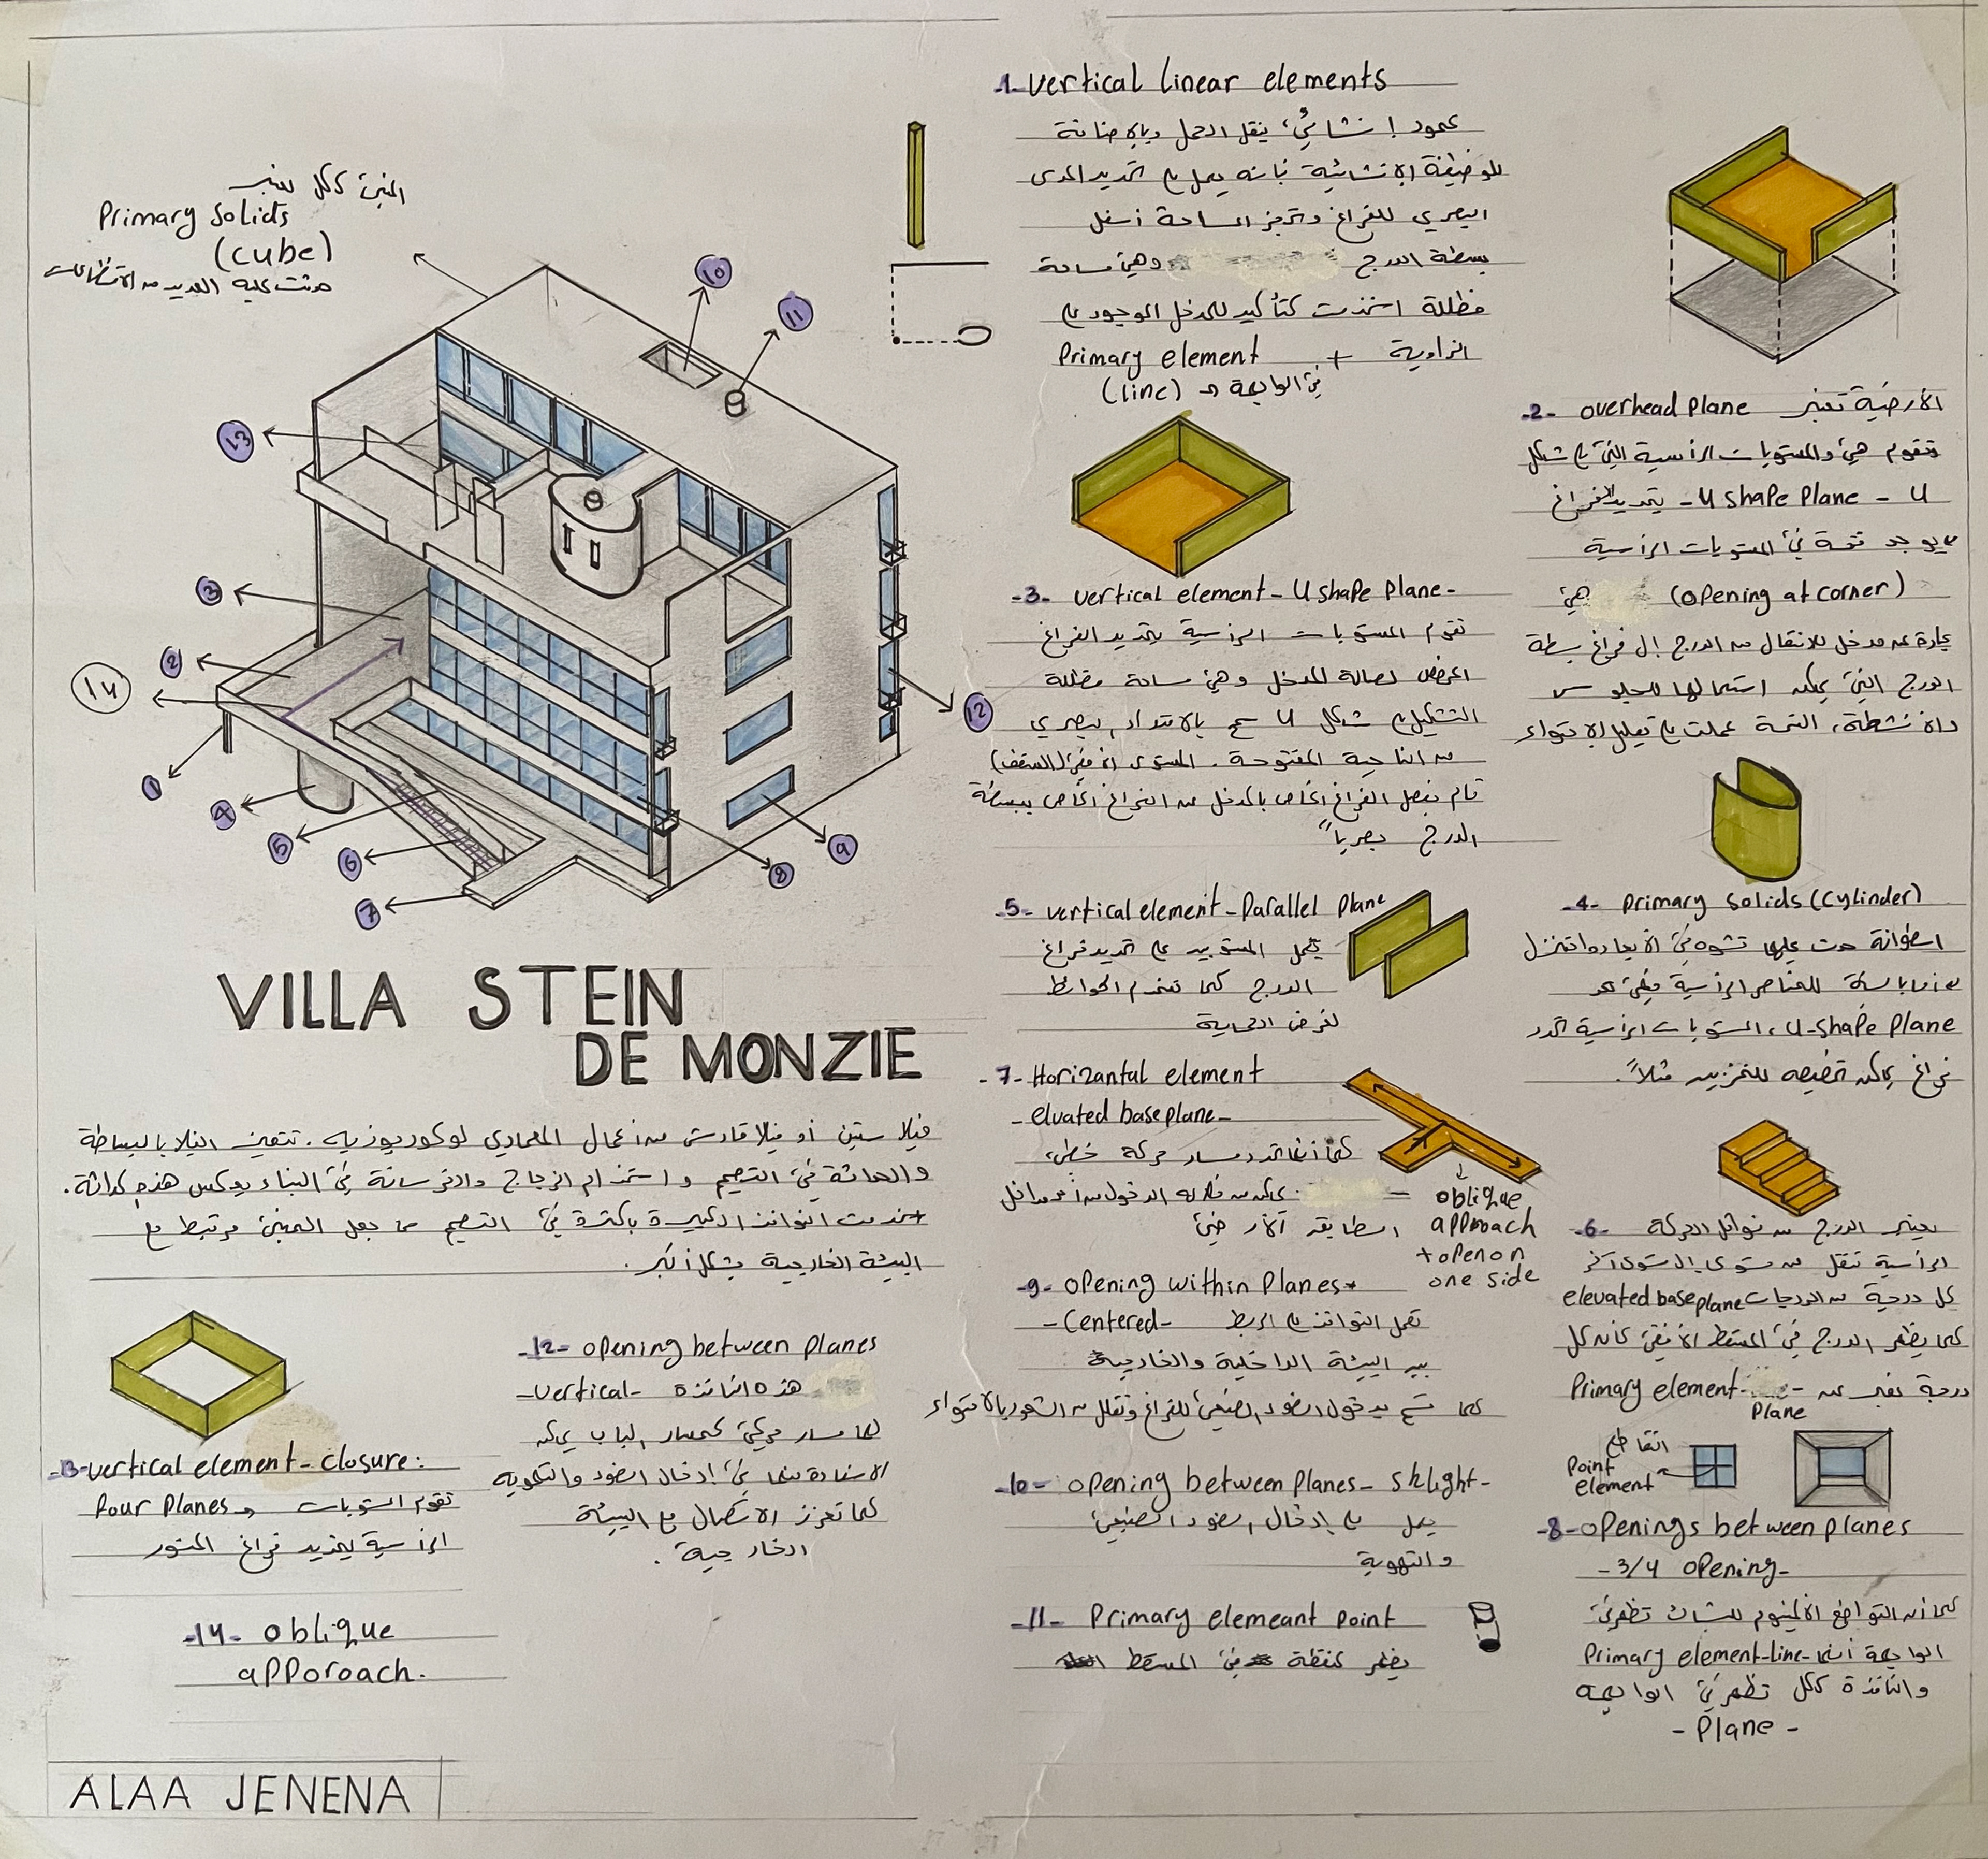 المبنى ككل يعتبر
Primary Solids
(cube)
حدثت عليه العديد من الاقتطاعات
10
11
13
3
2
14
12
1
4
5
6
7
8
9
VILLA STEIN
DE MONZIE
فيلا ستين أو فيلا قارش من أعمال المعماري لوكوربوزيه. تتميز الفيلا بالبساطة
والحداثة في التصميم واستخدام الزجاج والخرسانة في البناء يعكس هذه الحداثة.
النوافذ الكبيرة بكثرة في التصميم مما جعل المبنى مرتبط مع
البيئة الخارجية بشكل أكبر.
-1- vertical linear elements
عمود إنشائي، ينقل الحمل وبالإضافة
للوظيفة الإنشائية فإنه يعمل على تحديد المدى
البصري للفراغ وتركيز المساحة أسفل
بسطة الدرج وهي مساحة
مظللة كتأكيد للمدخل الموجود على
الزاوية + Primary element
في الواجهة (line)
-2- overhead plane الأرضية تعتبر
وتقوم هي والمستويات الرأسية التي على شكل
U - U shape plane - بتحديد الفراغ
يوجد فتحة في المستويات الرأسية
(opening at corner) هي
عبارة عن مدخل للانتقال من الدرج إلى فراغ بسطة
الدرج التي يمكن استعمالها للجلوس
والأنشطة، الفتحة عملت على تقليل الاحتواء
-3- vertical element - U shape plane -
تقوم المستويات الرأسية بتحديد الفراغ
لصالة المدخل وهي مساحة مظللة
التشكيل على شكل U سمح بالامتداد البصري
من الناحية المفتوحة. المستوى الأفقي (السقف)
قام بفصل الفراغ الخاص بالمدخل عن الفراغ الخاص ببسطة
الدرج بصرياً
-4- Primary Solids (Cylinder)
اسطوانة حدث عليها تشوه في الأبعاد
للعناصر الرأسية فهي
U-shape plane، المستويات الرأسية تحدد
فراغ يمكن تخصيصه للتخزين مثلاً.
-5- vertical element - Parallel plane
يعمل المستويين على تحديد فراغ
الدرج كما تستخدم الحوائط
لغرض الحماية
-6- يعتبر الدرج من نواقل الحركة
الرأسية تنقل من مستوى إلى مستوى آخر
كل درجة من الدرجات elevated base plane
كما يظهر الدرج في المسقط الأفقي كأنه كل
درجة تعبر عن Primary element-
Plane
-7- Horizantal element
- elvated base plane -
كما أنها تحدد مسار حركة خطي،
يمكن من خلاله الدخول من أحد مداخل
الطابق الأرضي
oblique
approach
+ open on
one side
النقاطع
Point
element
-8- Openings between planes
- 3/4 opening -
كما أن القواطع الألمنيوم للشباك تظهر في
الواجهة أنها Primary element-line-
والنافذة ككل تظهر في الواجهة
- Plane -
-9- opening within planes
- Centered - تعمل النوافذ على الربط
بين البيئة الداخلية والخارجية
كما تسمح بدخول الضوء الطبيعي للفراغ وتقلل من الشعور بالاحتواء
-10- opening between planes - Sklight -
يعمل على إدخال الضوء الطبيعي
والتهوية
-11- Primary elemeant point
يظهر كنقطة في المسقط
-12- opening between planes
- vertical - هذه النافذة
لها مسار حركي كمسار الباب يمكن
الاستفادة منها في إدخال الضوء والتهوية
كما تعزز الاتصال مع البيئة
الخارجية.
-13- vertical element - closure:
four planes تقوم المستويات
الرأسية بتحديد فراغ
-14- oblique
apporoach.
ALAA JENENA